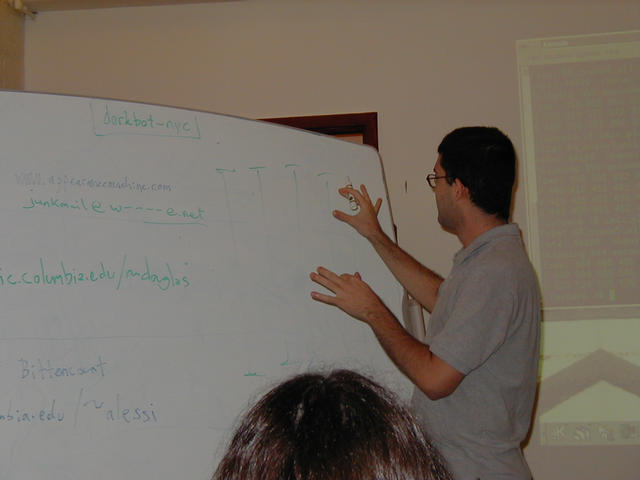 dorkbot-nyc
www.appearancemachine.com
junkmail@w----e.net
ic.columbia.edu/~douglas
Bittencourt
mbia.edu/~alessi